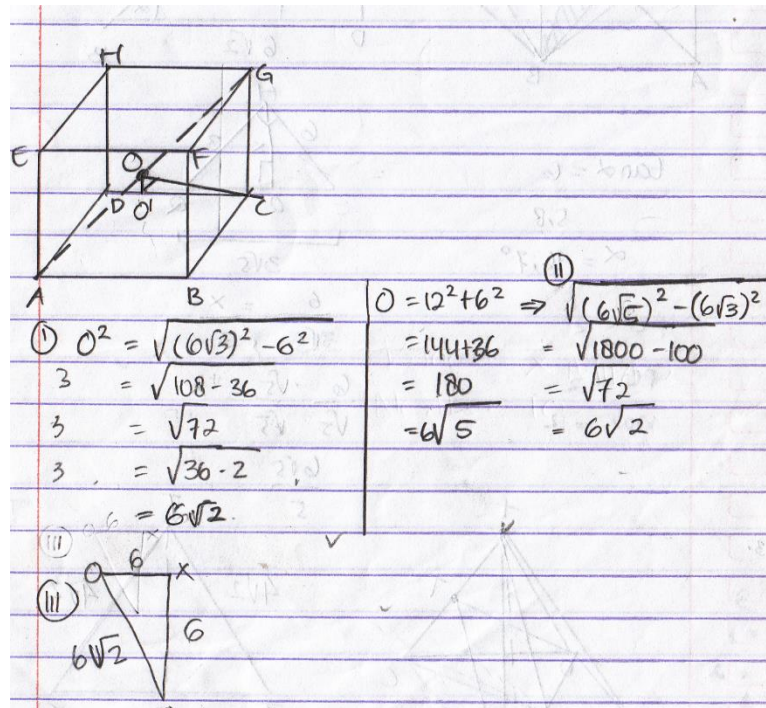 H G
E O F
D O' C
A B
① O² = √((6√3)² - 6²)
3 = √(108 - 36)
3 = √72
3 = √(36 · 2)
= 6√2
⑪
O = 12² + 6² ⇒ √((6√5)² - (6√3)²)
= 144 + 36 = √(1800 - 100)
= 180 = √72
= 6√5 = 6√2
⑪⑪
O 6 X
6
6√2